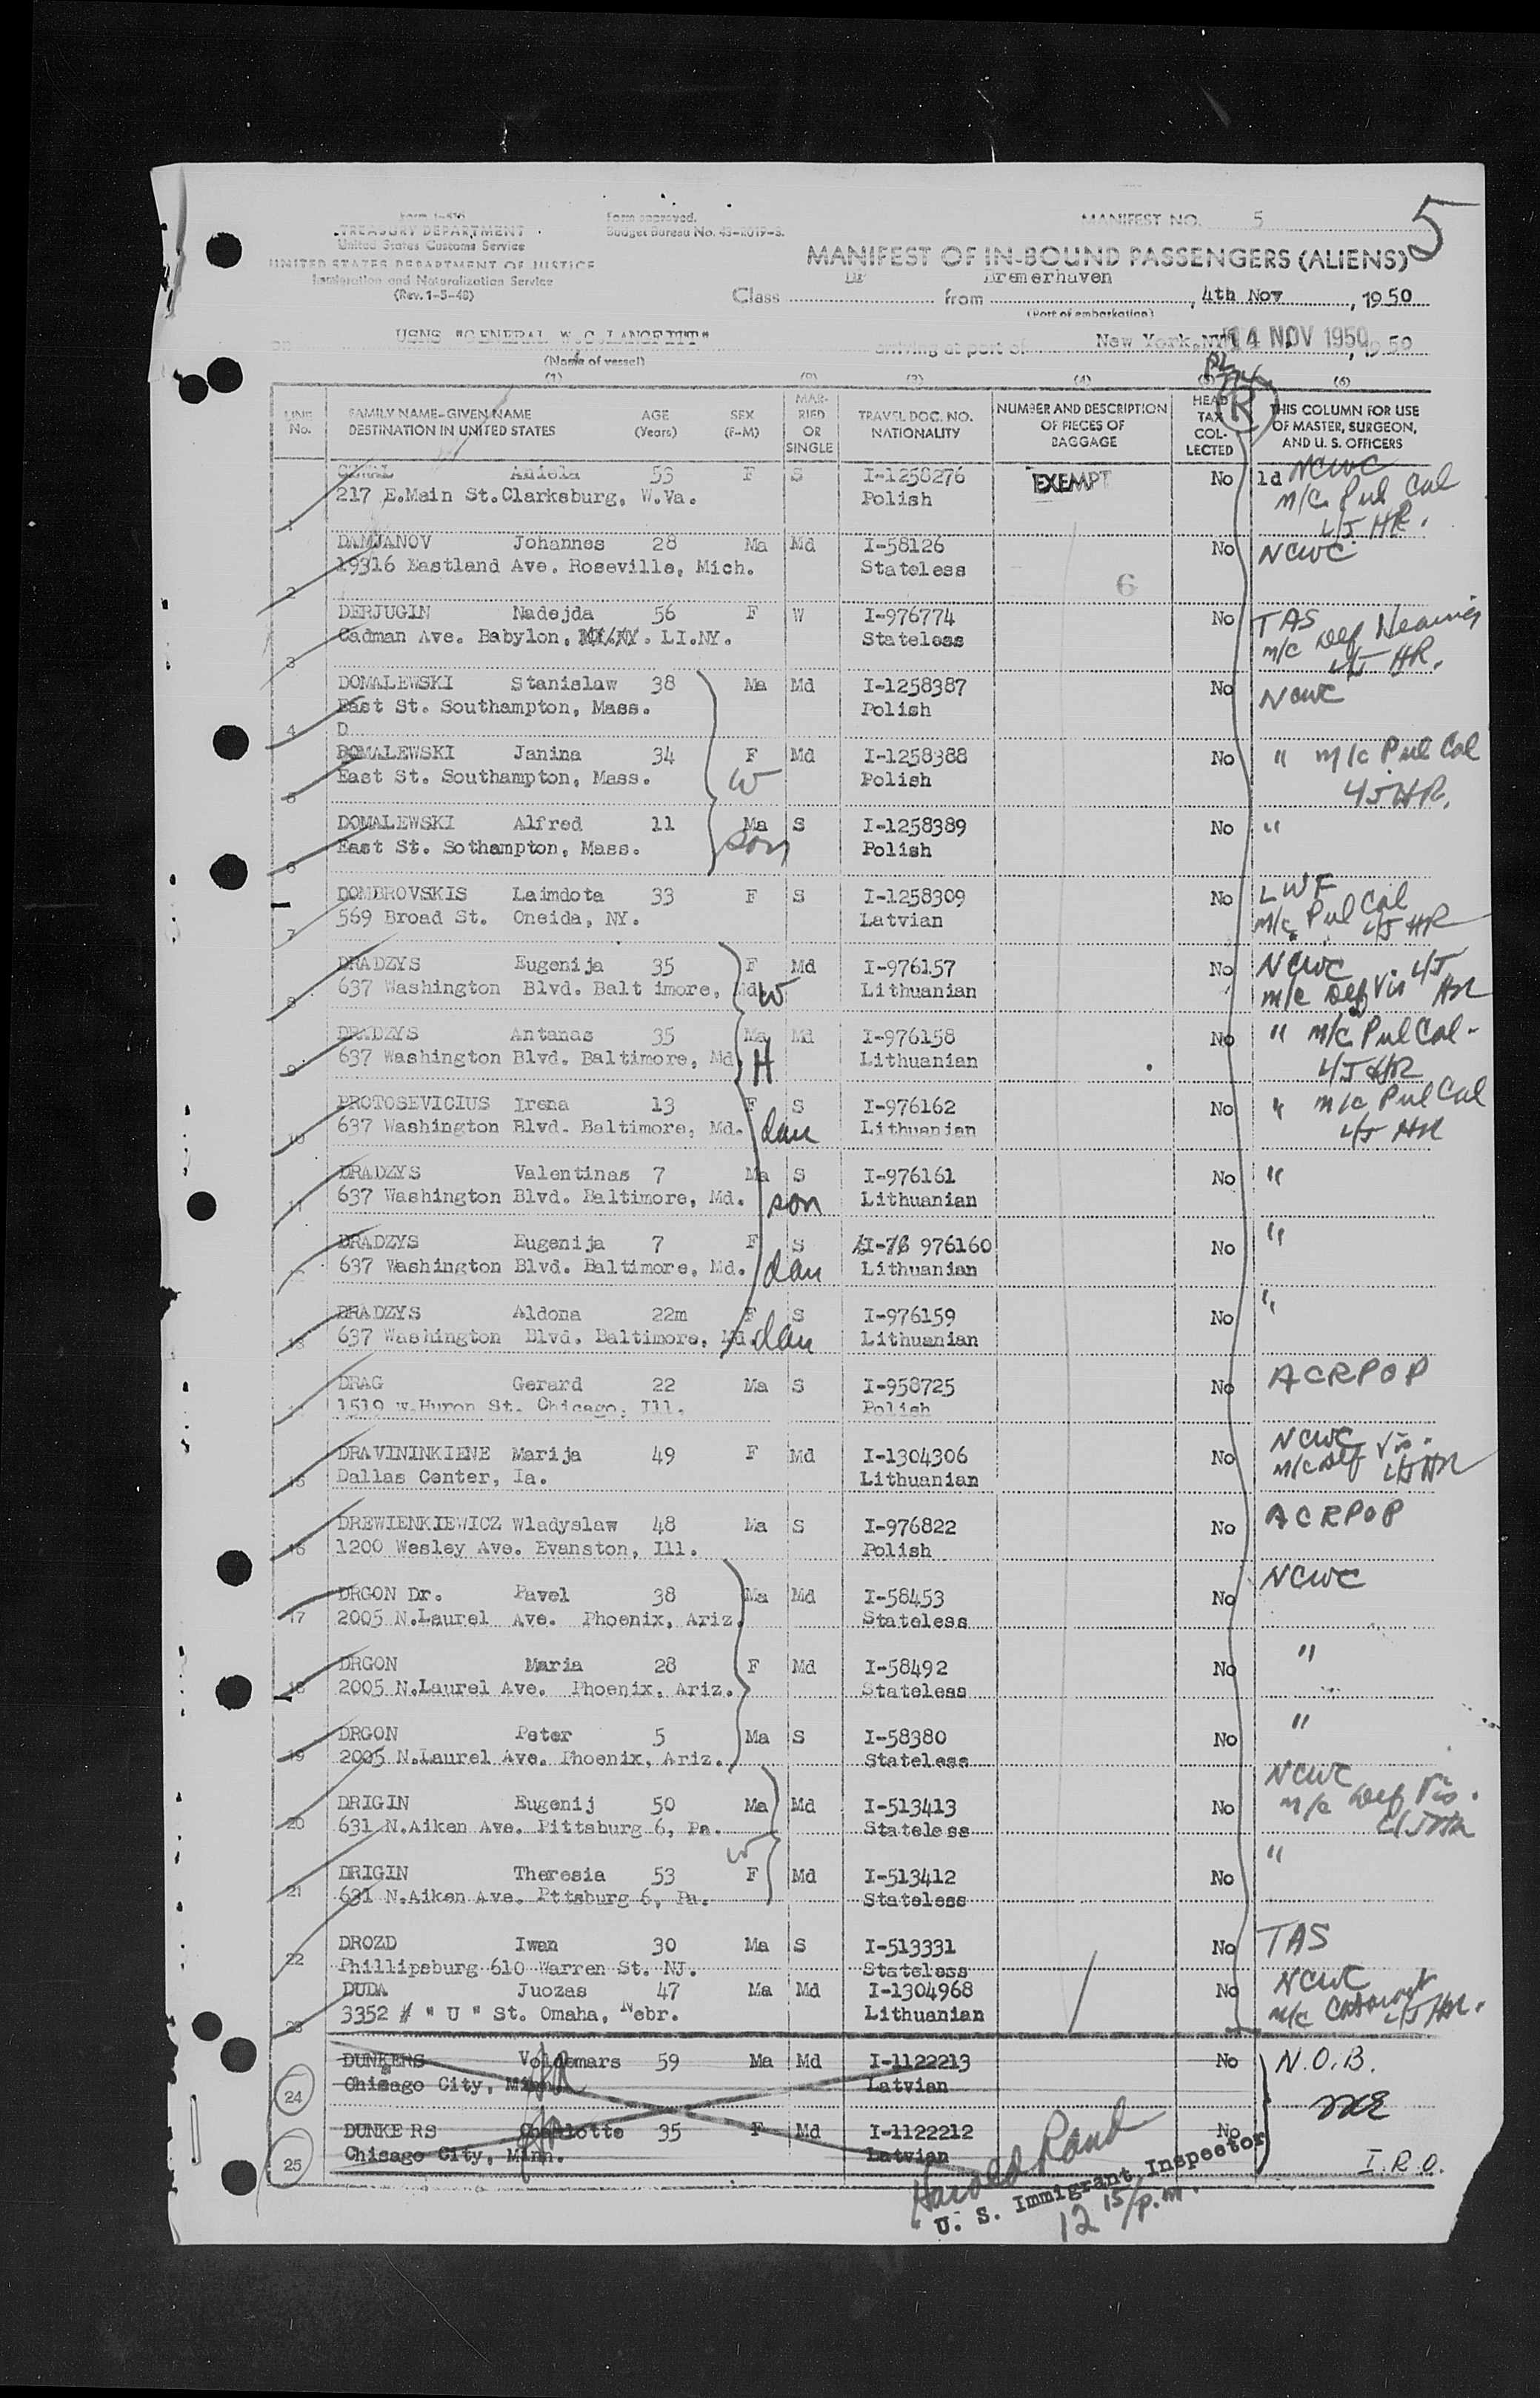 MANIFEST NO. 5
5
TREASURY DEPARTMENT
United States Customs Service
UNITED STATES DEPARTMENT OF JUSTICE
Immigration and Naturalization Service
(Rev. 1-5-48)
Form approved.
MANIFEST OF IN-BOUND PASSENGERS (ALIENS)
Class from Bremerhaven, 4th Nov, 1950
(Port of embarkation)
USNS "GENERAL W.C.LANGFITT" arriving at port of New York, NY 14 NOV 1950, 1950
(Name of vessel)
(1) (2) (3) (4) (5) (6)
LINE No. FAMILY NAME-GIVEN NAME DESTINATION IN UNITED STATES AGE (Years) SEX (F-M) MARRIED OR SINGLE TRAVEL DOC. NO. NATIONALITY NUMBER AND DESCRIPTION OF PIECES OF BAGGAGE HEAD TAX COLLECTED R THIS COLUMN FOR USE OF MASTER, SURGEON, AND U. S. OFFICERS
Aniela 53 F S I-1258276 EXEMPT No 1d NCWC
217 E.Main St.Clarksburg, W.Va. Polish m/c Pul Cal
1
DAMJANOV Johannes 28 Ma Md I-58126 No NCWC
19316 Eastland Ave. Roseville, Mich. Stateless 6
2
DERJUGIN Nadejda 56 F W I-976774 No TAS
Cadman Ave. Babylon, LI.NY. Stateless m/c Def Hearing
3
DOMALEWSKI Stanislaw 38 Ma Md I-1258387 No NCWC
East St. Southampton, Mass. Polish
4 D
DOMALEWSKI Janina 34 F Md I-1258388 No " m/c Pul Cal
East St. Southampton, Mass. W Polish
DOMALEWSKI Alfred 11 Ma S I-1258389 No "
East St. Sothampton, Mass. son Polish
6
DOMBROVSKIS Laimdota 33 F S I-1258309 No LWF
569 Broad St. Oneida, NY. Latvian m/c Pul Cal
7
DRADZYS Eugenija 35 F Md I-976157 No NCWC
637 Washington Blvd. Balt imore, Md. W Lithuanian m/c Def Vis
8
DRADZYS Antanas 35 Ma Md I-976158 No " m/c Pul Cal
637 Washington Blvd. Baltimore, Md. H Lithuanian
9
PROTOSEVICIUS Irena 13 F S I-976162 No " m/c Pul Cal
637 Washington Blvd. Baltimore, Md. dau Lithuanian
10
DRADZYS Valentinas 7 Ma S I-976161 No "
637 Washington Blvd. Baltimore, Md. son Lithuanian
11
DRADZYS Eugenija 7 F S 976160 No "
637 Washington Blvd. Baltimore, Md. dau Lithuanian
DRADZYS Aldona 22m F S I-976159 No "
637 Washington Blvd. Baltimore, Md. dau Lithuanian
13
DRAG Gerard 22 Ma S I-958725 No ACRPOP
1519 w.Huron St. Chicago, Ill. Polish
DRAVININKIENE Marija 49 F Md I-1304306 No NCWC
Dallas Center, Ia. Lithuanian m/c Def Vis.
15
DREWIENKIEWICZ Wladyslaw 48 Ma S I-976822 No ACRPOP
1200 Wesley Ave. Evanston, Ill. Polish
16
DRGON Dr. Pavel 38 Ma Md I-58453 No NCWC
2005 N.Laurel Ave. Phoenix, Ariz. Stateless
17
DRGON Maria 28 F Md I-58492 No "
2005 N.Laurel Ave. Phoenix, Ariz. Stateless
18
DRGON Peter 5 Ma S I-58380 No "
2005 N.Laurel Ave. Phoenix, Ariz. Stateless
19
DRIGIN Eugenij 50 Ma Md I-513413 No NCWC
631 N.Aiken Ave. Pittsburg 6, Pa. Stateless m/c Def Vis.
20
DRIGIN Theresia 53 W F Md I-513412 No "
631 N.Aiken Ave. Pttsburg 6, Pa. Stateless
21
DROZD Iwan 30 Ma S I-513331 No TAS
Phillipsburg 610 Warren St. NJ. Stateless
22
DUDA Juozas 47 Ma Md I-1304968 No NCWC
3352 # " U " St. Omaha, Nebr. Lithuanian m/c Cataract
23
DUNKERS Voldemars 59 Ma Md I-1122213 No N.O.B.
Chisago City, Minn. Latvian
24
DUNKE RS Charlotte 35 F Md I-1122212 No
Chisago City, Minn. Latvian I.R.O.
25
Harold Rand
U. S. Immigrant Inspector
12 15/p.m.